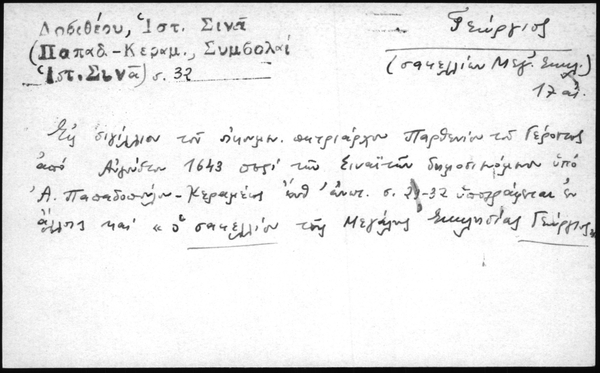 Δοσιθέου, Ἱστ. Σινᾶ
(Παπαδ.-Κεραμ., Συμβολαί
Ἱστ. Σινᾶ) σ. 32
Γεώργιος
(σακελλίων Μεγ. Ἐκκλ.)
17 αἰ.
Εἰς σιγίλλιον τοῦ οἰκουμ. πατριάρχου Παρθενίου τοῦ Γέροντος
ἀπό Αὐγούστου 1643 περί τῶν Σιναϊτῶν δημοσιευόμενον ὑπό
Ἀ. Παπαδοπούλου-Κεραμέως ἔνθ' ἀνωτ. σ. 29-32 ὑπογράφεται ἐν
ἄλλοις καί « ὁ σακελλίου τῆς Μεγάλης Ἐκκλησίας Γεώργιος»